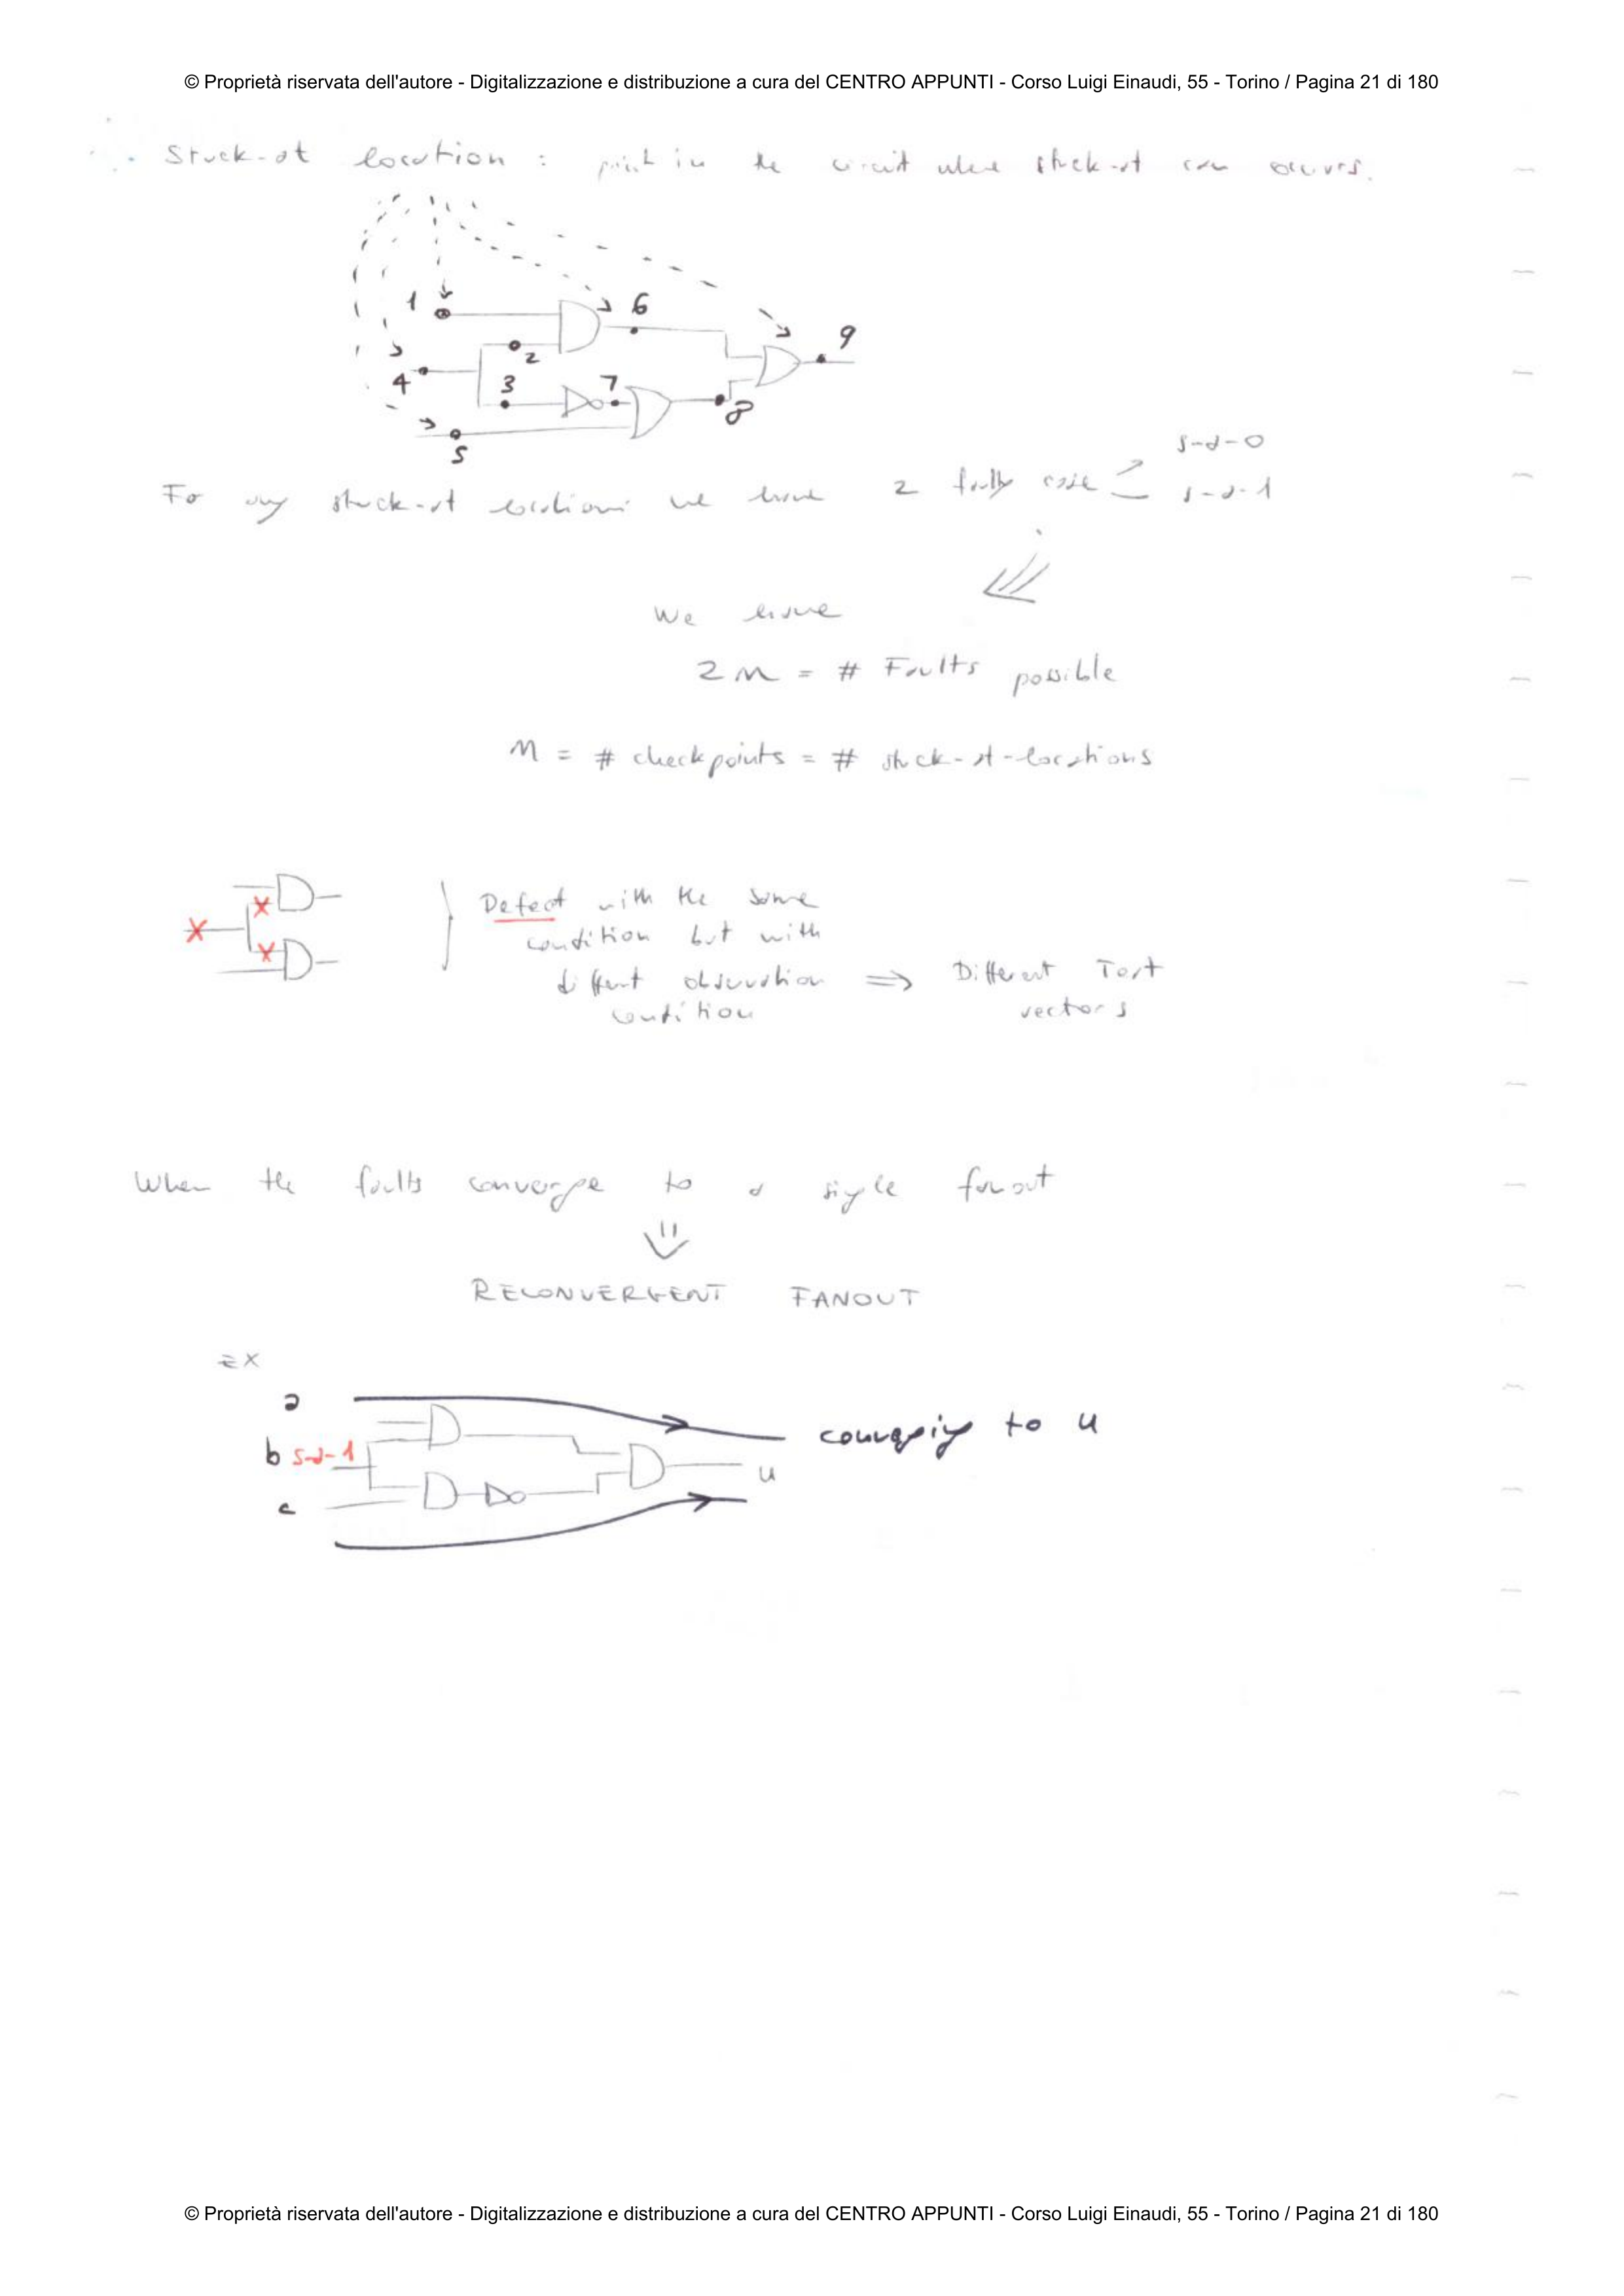 © Proprietà riservata dell'autore - Digitalizzazione e distribuzione a cura del CENTRO APPUNTI - Corso Luigi Einaudi, 55 - Torino / Pagina 21 di 180
Stuck-at location : point in the circuit where stuck-at can occurs.
1
6
9
2
4
3
7
8
5
For any stuck-at locations we have 2 faulty case
s-a-0
s-a-1
We have
2m = # Faults possible
m = # checkpoints = # stuck-at-locations
Defect with the same
condition but with
diffent observation ⇒ Different Test
condition vectors
When the faults converge to a single fanout
⇓
RECONVERGENT FANOUT
EX
a
converging to u
b s-a-1
u
c
© Proprietà riservata dell'autore - Digitalizzazione e distribuzione a cura del CENTRO APPUNTI - Corso Luigi Einaudi, 55 - Torino / Pagina 21 di 180